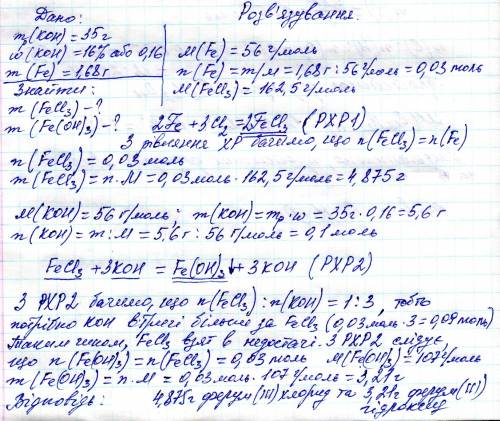 Дано:
Розв'язування.
m₃(KOH)=35г
w(KOH)=16% або 0,16
m(Fe)=1,68г
M(Fe)=56 г/моль
n(Fe)=m/M=1,68г:56г/моль=0,03 моль
M(FeCl₃)=162,5г/моль
Знайти:
m(FeCl₃)-?
m(Fe(OH)₃)-?
2Fe+3Cl₂=2FeCl₃ (РХР1)
З рівняння ХР бачимо, що n(FeCl₃)=n(Fe)
n(FeCl₃)=0,03 моль
m(FeCl₃)=n·M=0,03моль·162,5г/моль=4,875г
M(KOH)=56 г/моль; m(KOH)=mр·w=35г·0,16=5,6г
n(KOH)=m:M=5,6г:56г/моль=0,1 моль
FeCl₃+3KOH=Fe(OH)₃↓+3KOH (РХР2)
З РХР2 бачимо, що n(FeCl₃):n(KOH)=1:3, тобто
потрібно KOH втричі більше за FeCl₃ (0,03моль·3=0,09моль)
Таким чином, FeCl₃ взят в недостачі. З РХР2 слідує,
що n(Fe(OH)₃)=n(FeCl₃)=0,03 моль M(Fe(OH)₃)=107г/моль
m(Fe(OH)₃)=n·M=0,03моль·107г/моль=3,21г
Відповідь: 4,875г ферум(III)хлорид та 3,21г ферум(III)
гідроксид